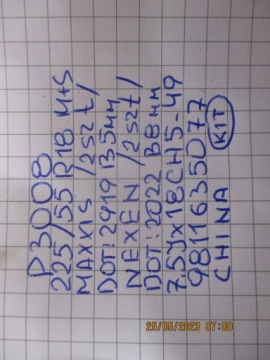 P3008
225/55 R18 M+S
MAXXIS /2szt/
DOT:2919 B5mm
NEXEN /2szt/
DOT:2022 B8mm
7.5Jx18CH5-49
9811635077
CHINA KIT
25/05/2023 07:08